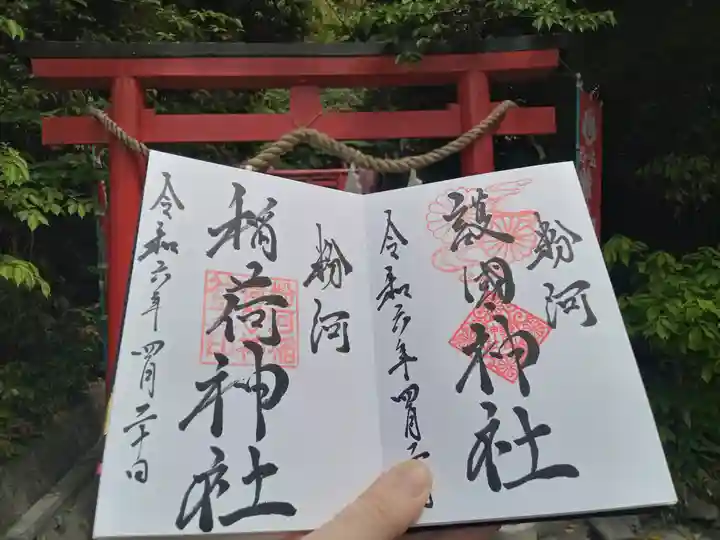 粉河
護國神社
令和六年四月二
粉河
稲荷神社
令和六年四月二十日